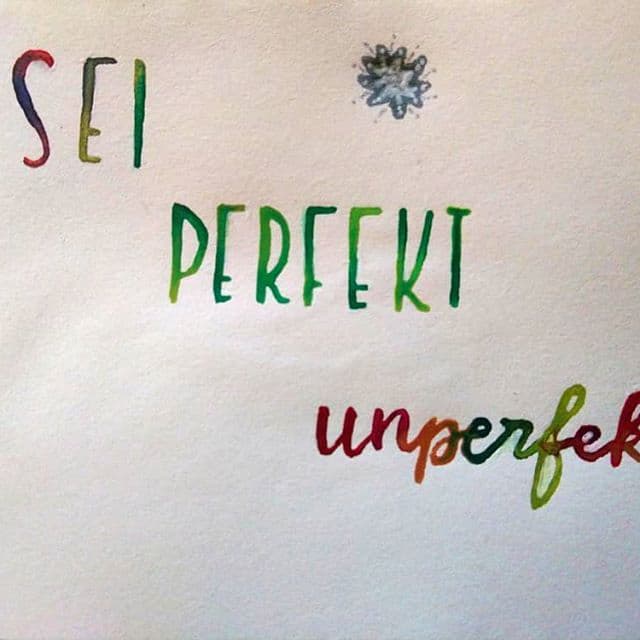 SEI
PERFEKT
unperfek